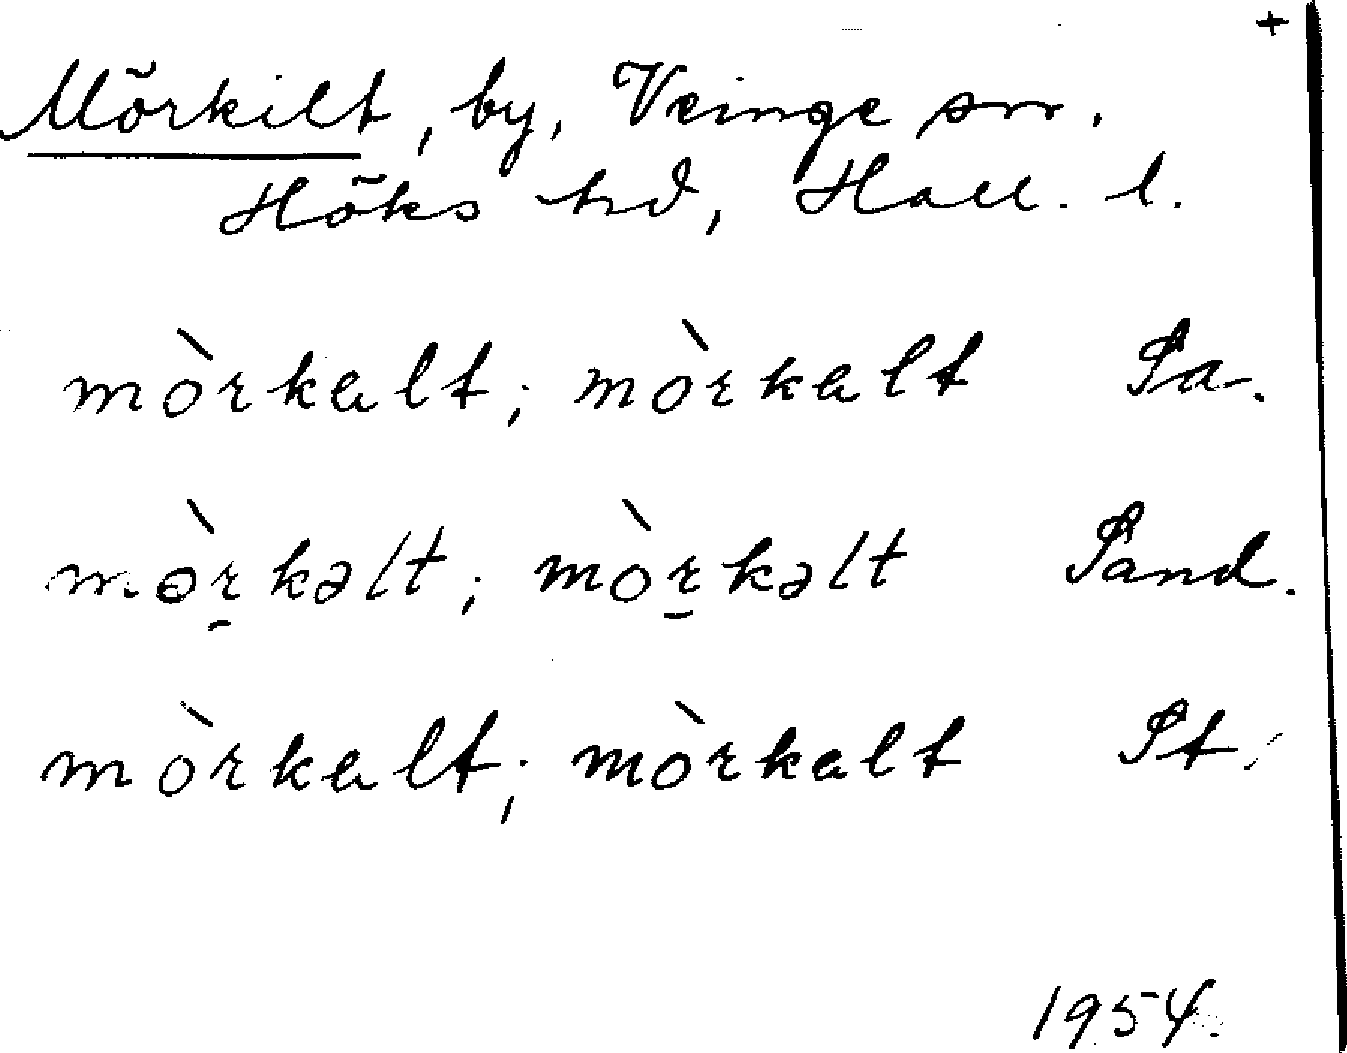 +
Mörkilt, by, Veinge sn.
Höks hd, Hall. l.
mòrkalt; mòrkalt Sa.
mòrkəlt; mòrkəlt Sand.
mòrkalt; mòrkalt St.
1954.